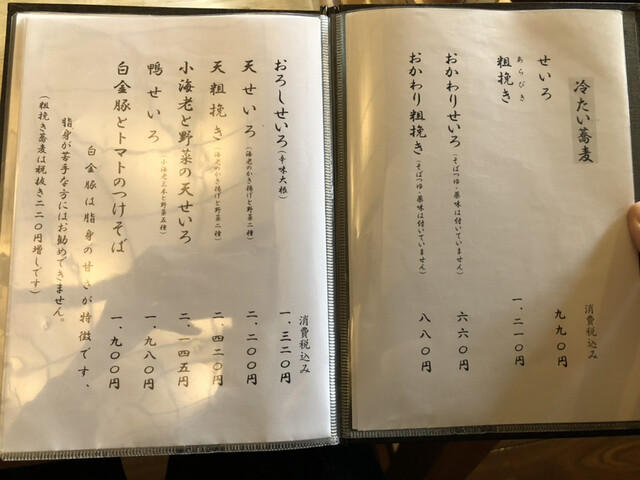 冷たい蕎麦
消費税込み
せいろ 九九〇円
あらびき
粗挽き 一、二一〇円
おかわりせいろ(そばつゆ・薬味は付いていません) 六六〇円
おかわり粗挽き(そばつゆ・薬味は付いていません) 八八〇円
消費税込み
おろしせいろ(辛味大根) 一、三二〇円
天せいろ(海老のかき揚げと野菜二種) 二、二〇〇円
天粗挽き(海老のかき揚げと野菜二種) 二、四二〇円
小海老と野菜の天せいろ 二、一四五円
(小海老三本と野菜五種)
鴨せいろ 一、九八〇円
白金豚とトマトのつけそば 一、九〇〇円
白金豚は脂身の甘さが特徴です、
脂身が苦手な方にはお勧めできません。
(粗挽き蕎麦は税抜き二二〇円増しです)